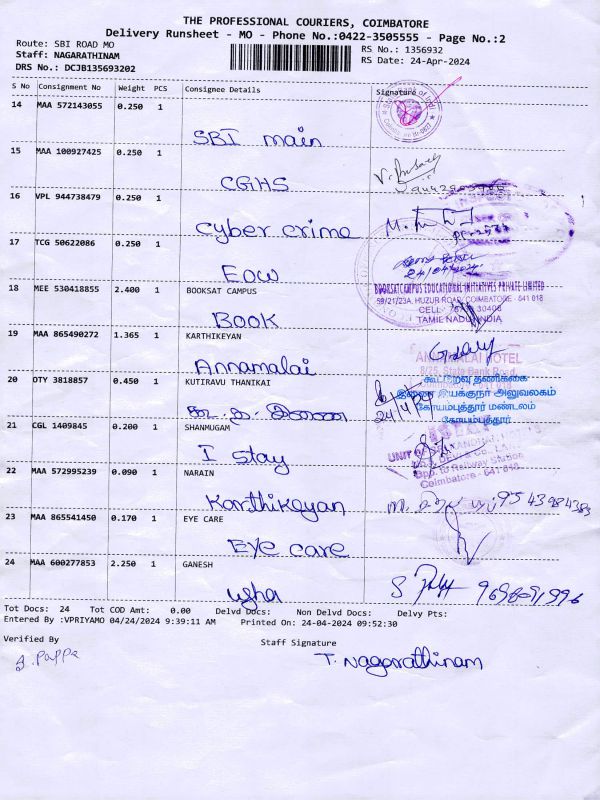 THE PROFESSIONAL COURIERS, COIMBATORE
Delivery Runsheet - MO - Phone No.:0422-3505555 - Page No.:2
Route: SBI ROAD MO
Staff: NAGARATHINAM
DRS No.: DCJB135693202
RS No.: 1356932
RS Date: 24-Apr-2024
S No Consignment No Weight PCS Consignee Details Signature
14 MAA 572143055 0.250 1
SBI main
15 MAA 100927425 0.250 1
CGHS
16 VPL 944738479 0.250 1
Cyber crime
17 TCG 50622086 0.250 1
EOW
24/04/2024
18 MEE 530418855 2.400 1 BOOKSAT CAMPUS
BOOKSATCAMPUS EDUCATIONAL INITIATIVES PRIVATE LIMITED
59/21/23A, HUZUR ROAD, COIMBATORE - 641 018
TAMIL NADU, INDIA
Book
19 MAA 865490272 1.365 1 KARTHIKEYAN
Annamalai
ANNAMALAI HOTEL
8/25, State Bank Road,
20 DTY 3818857 0.450 1 KUTIRAVU THANIKAI
கூட்டுறவு தணிக்கை
இணை இயக்குநர் அலுவலகம்
கோயம்புத்தூர் மண்டலம்
கோயம்புத்தூர்
கூ.த. இணை
21 CGL 1409845 0.200 1 SHANMUGAM
I stay
Opp. to Railway Station
Coimbatore - 641 018
22 MAA 572995239 0.090 1 NARAIN
Karthikeyan
23 MAA 865541450 0.170 1 EYE CARE
Eye care
24 MAA 600277853 2.250 1 GANESH
usha
Tot Docs: 24 Tot COD Amt: 0.00 Delvd Docs: Non Delvd Docs: Delvy Pts:
Entered By :VPRIYAMO 04/24/2024 9:39:11 AM Printed On: 24-04-2024 09:52:30
Verified By Staff Signature
T. Nagarathinam